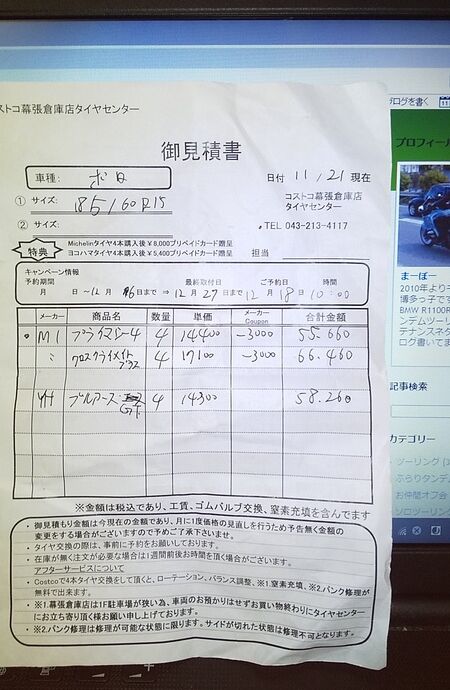 コストコ幕張倉庫店タイヤセンター
御見積書
車種: ポロ
日付 11/21 現在
① サイズ: 185/60R15
コストコ幕張倉庫店
タイヤセンター
② サイズ:
TEL 043-213-4117
特典
Michelinタイヤ4本購入後￥8,000プリペイドカード贈呈
ヨコハマタイヤ4本購入後￥5,400プリペイドカード贈呈
担当
キャンペーン情報
予約期間 最終取付日 ご予約日 時間
月 日～12月 16日まで ⇒ 12月 27日まで 12月 18日 10:00
メーカー 商品名 数量 単価 メーカーCoupon 合計金額
MI プライマシー4 4 14400 -3000 55.660
〃 クロスクライメイトプラス 4 17100 -3000 66.460
YH ブルアース GT 4 14300 58.260
※金額は税込であり、工賃、ゴムバルブ交換、窒素充填を含んでます
・御見積もり金額は今現在の金額であり、月に1度価格の見直しを行うため予告無く金額の
変更をする場合がございますので予めご了承下さいませ。
・タイヤ交換の際は、事前に予約をお願いしております。
・在庫が無く注文が必要な場合は1週間前後お時間を頂く場合がございます。
アフターサービスについて
・Costcoで4本タイヤ交換をして頂くと、ローテーション、バランス調整、※1.窒素充填、※2.パンク修理が
無料で出来ます。
・※1.幕張倉庫店は1F駐車場が狭い為、車両のお預かりはせずお買い物終わりにタイヤセンター
にお立ち寄り頂く様お願い申し上げております。
・※2.パンク修理は修理が可能な状態に限ります。サイドが切れた状態は修理不可となります。
ブログを書く
プロフィール
まーぼー
2010年より
博多っ子です
BMW R1100R
ンデムツーリ
テナンスネタ
ログ書いてま
記事検索
カテゴリー
ツーリング
ぶらりタンデ
お仲間オフ会
ソロツーリング